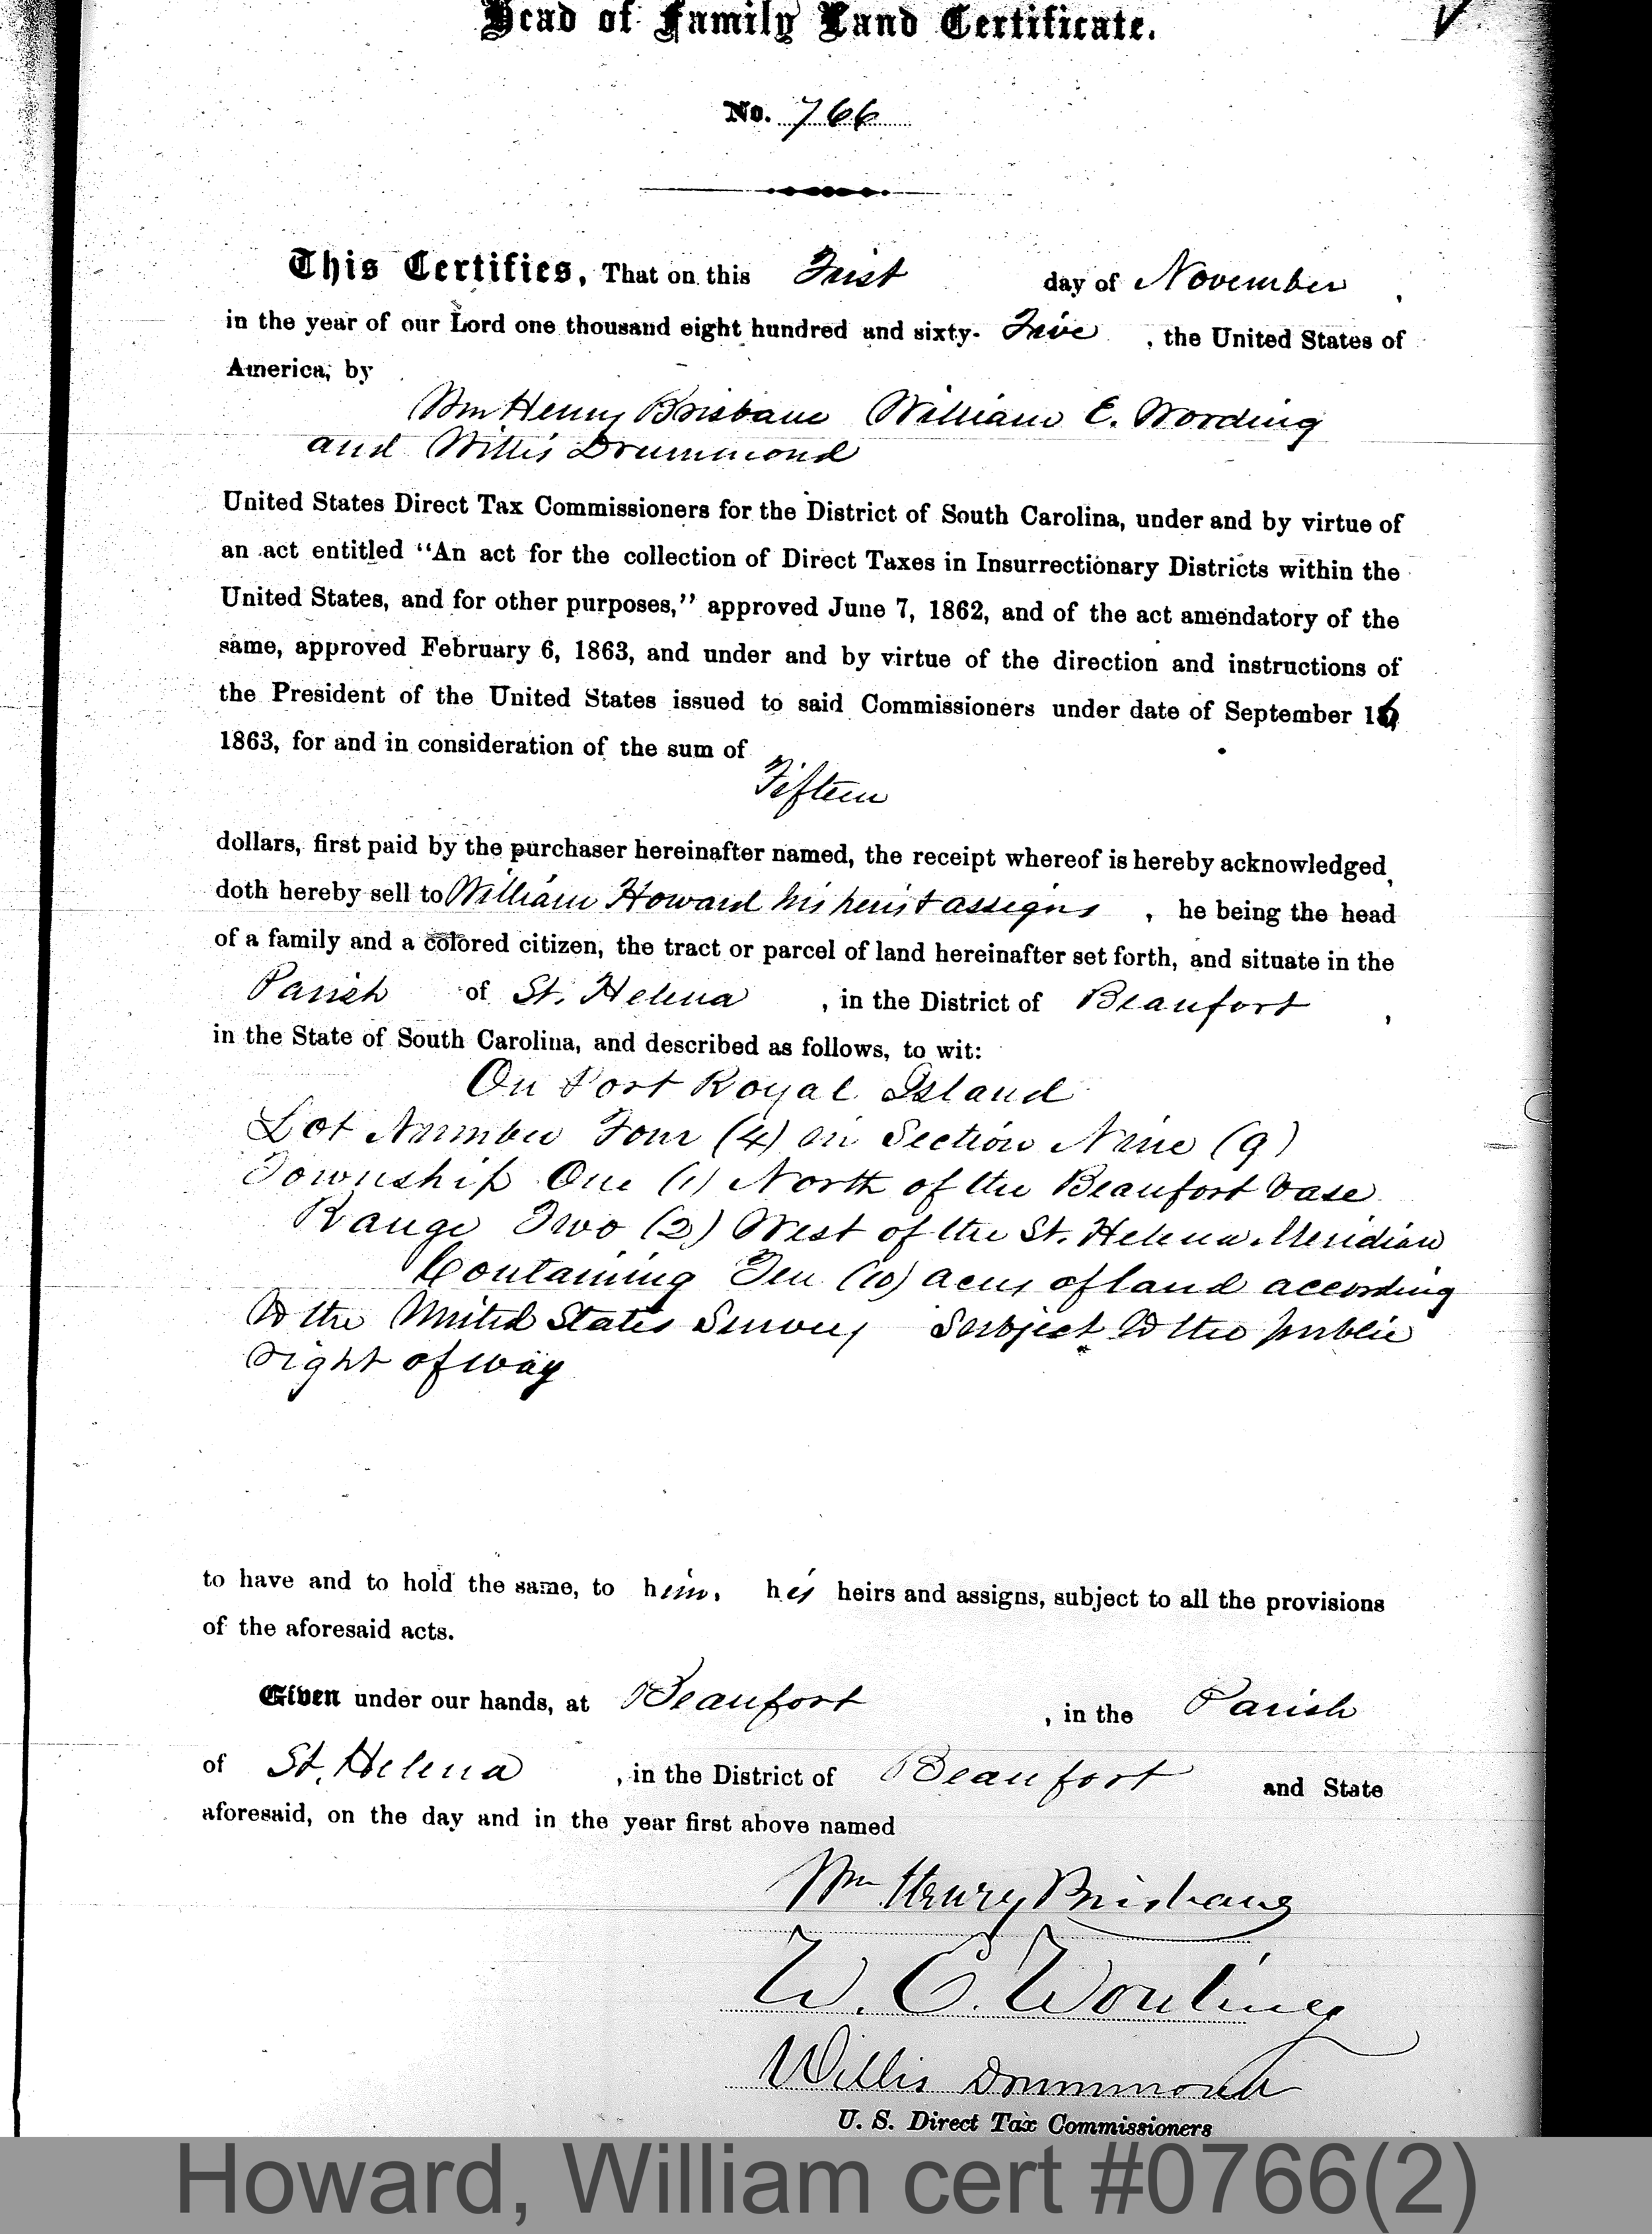 Head of Family Land Certificate.
No. 766
This Certifies, That on this First day of November,
in the year of our Lord one thousand eight hundred and sixty-Five, the United States of
America, by
Wm Henry Brisbane William E. Wording
and Willis Drummond
United States Direct Tax Commissioners for the District of South Carolina, under and by virtue of
an act entitled "An act for the collection of Direct Taxes in Insurrectionary Districts within the
United States, and for other purposes," approved June 7, 1862, and of the act amendatory of the
same, approved February 6, 1863, and under and by virtue of the direction and instructions of
the President of the United States issued to said Commissioners under date of September 16
1863, for and in consideration of the sum of
Fifteen
dollars, first paid by the purchaser hereinafter named, the receipt whereof is hereby acknowledged,
doth hereby sell to William Howard his heirs & assigns, he being the head
of a family and a colored citizen, the tract or parcel of land hereinafter set forth, and situate in the
Parish of St. Helena, in the District of Beaufort,
in the State of South Carolina, and described as follows, to wit:
On Port Royal Island
Lot Number Four (4) in Section Nine (9)
Township One (1) North of the Beaufort base
Range Two (2) West of the St. Helena Meridian
Containing Ten (10) acres of land according
to the United States Survey Subject to the public
right of way
to have and to hold the same, to him, his heirs and assigns, subject to all the provisions
of the aforesaid acts.
Given under our hands, at Beaufort, in the Parish
of St. Helena, in the District of Beaufort and State
aforesaid, on the day and in the year first above named
Wm Henry Brisbane
W. E. Wording
Willis Drummond
U. S. Direct Tax Commissioners
Howard, William cert #0766(2)